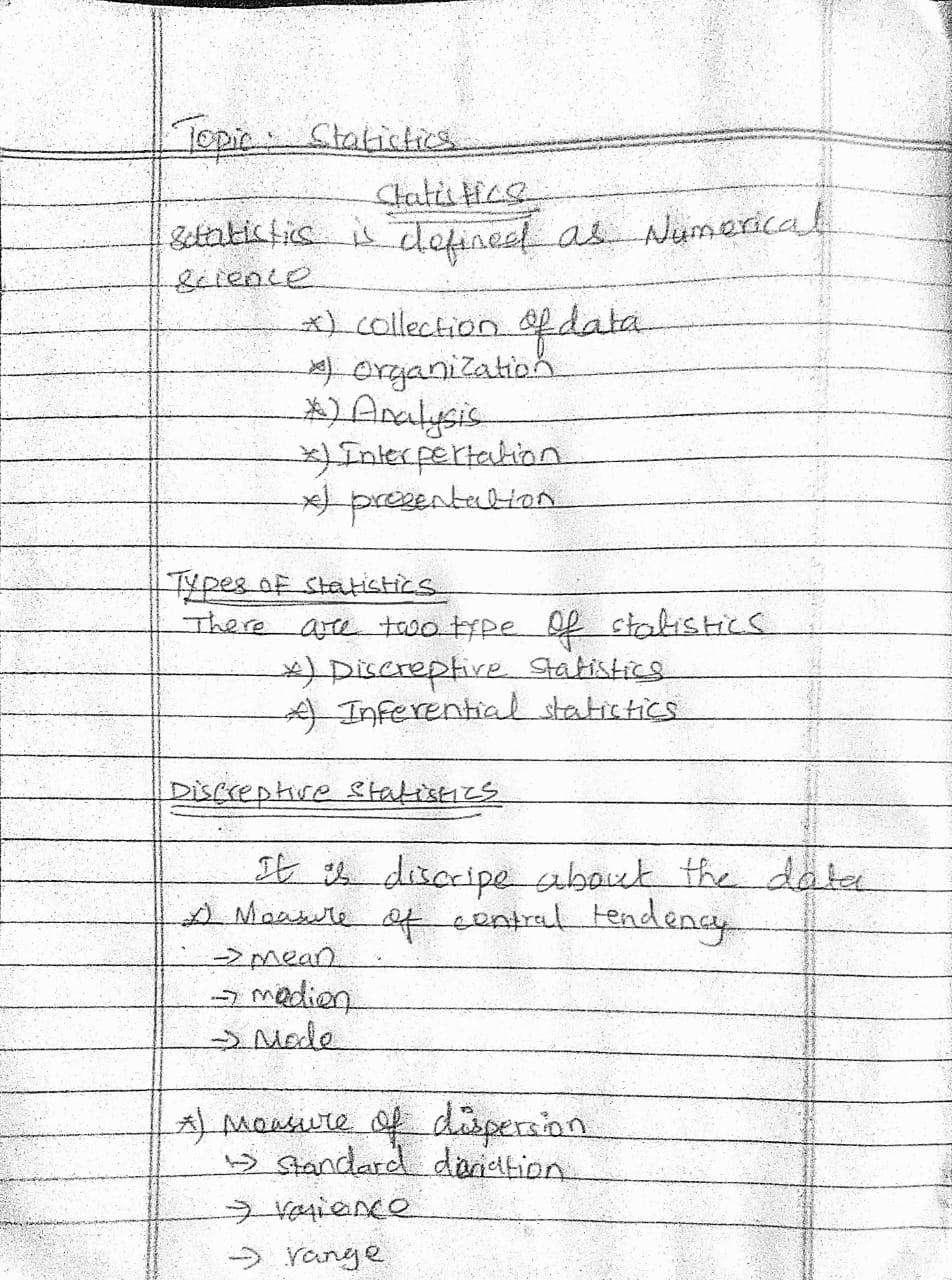 Topic: Statictics
Statistics
Statistics is defined as Numerical
science
*) collection of data
*) organization
*) Analysis
*) Interpertation
*) presentation
Types of statistics
There are two type of statistics
*) Discreptive statistics
*) Inferential statictics
Discreptive statistics
It is discripe about the data
*) Measure of central tendency
-> mean
-> median
-> Mode
*) Measure of dispersion
-> standard deviation
-> varience
-> range